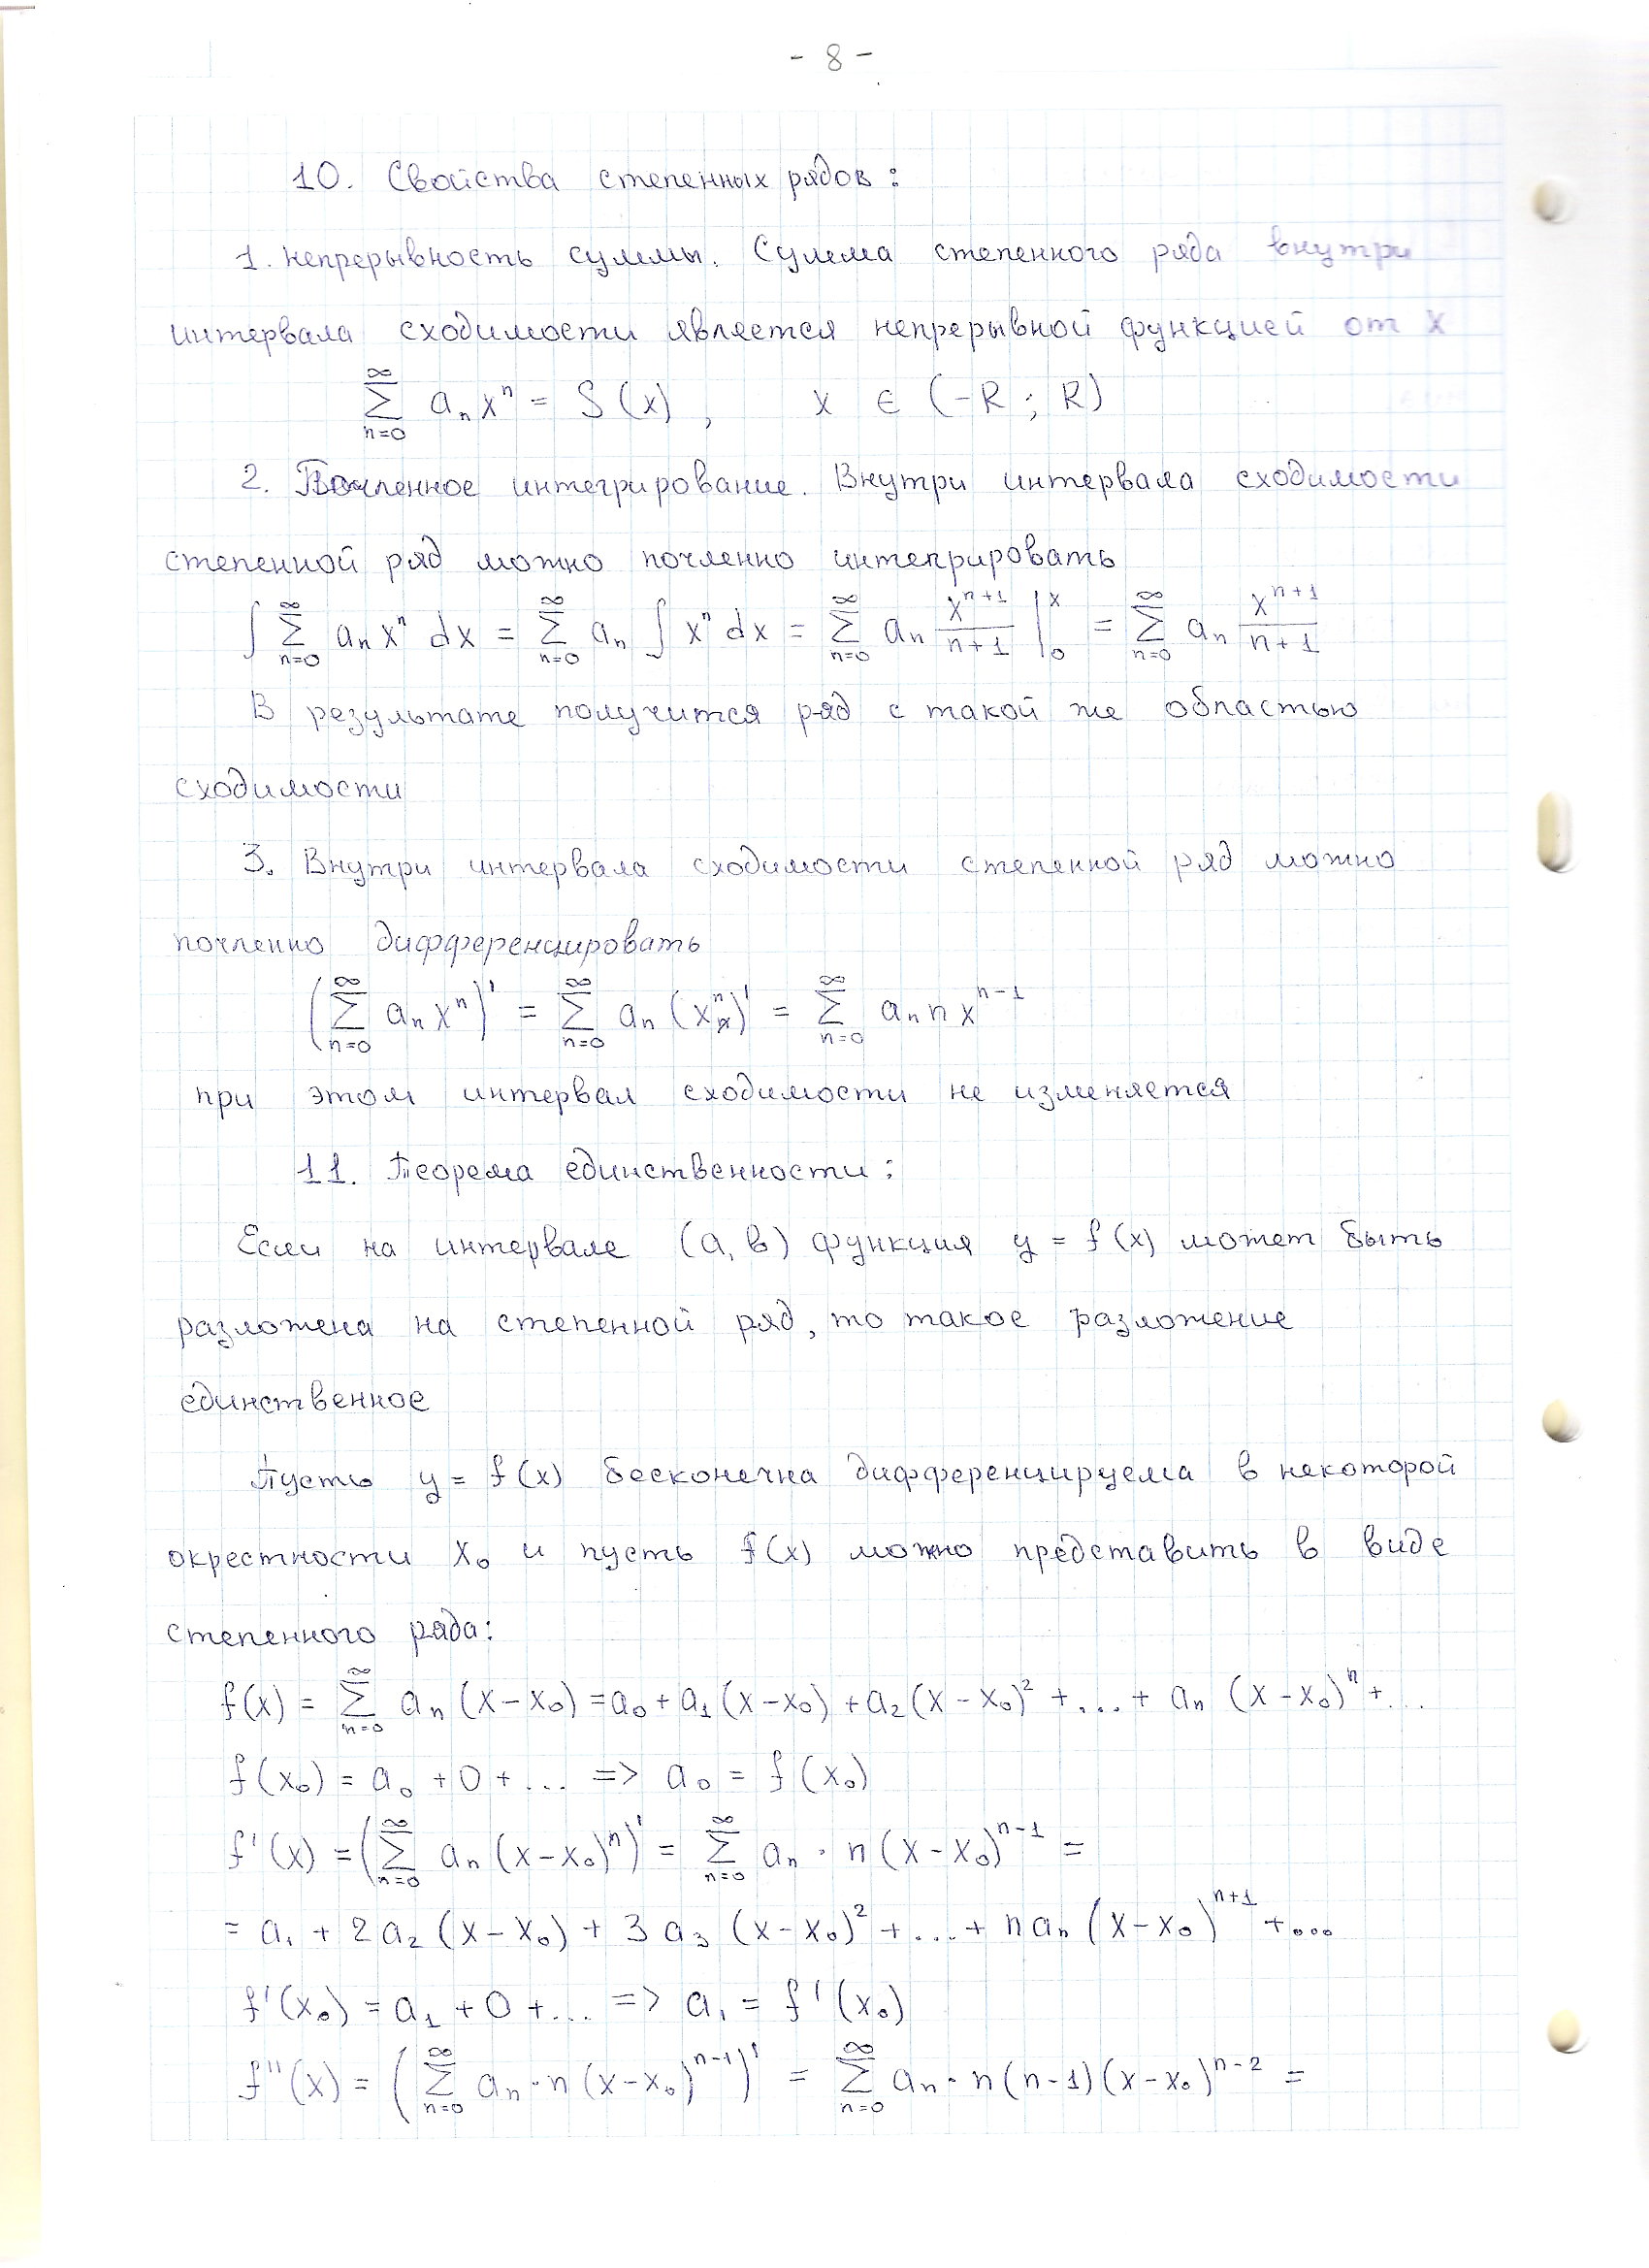 - 8 -
10. Свойства степенных рядов:
1. непрерывность суммы. Сумма степенного ряда внутри
интервала сходимости является непрерывной функцией от x
∑_{n=0}^{∞} a_n x^n = S(x), x ∈ (-R; R)
2. Почленное интегрирование. Внутри интервала сходимости
степенной ряд можно почленно интегрировать
∫ ∑_{n=0}^{∞} a_n x^n dx = ∑_{n=0}^{∞} a_n ∫ x^n dx = ∑_{n=0}^{∞} a_n x^{n+1}/(n+1) |_0^x = ∑_{n=0}^{∞} a_n x^{n+1}/(n+1)
В результате получится ряд с такой же областью
сходимости
3. Внутри интервала сходимости степенной ряд можно
почленно дифференцировать
(∑_{n=0}^{∞} a_n x^n)' = ∑_{n=0}^{∞} a_n (x^n)' = ∑_{n=0}^{∞} a_n n x^{n-1}
при этом интервал сходимости не изменяется
11. Теорема единственности:
Если на интервале (a, b) функция y = f(x) может быть
разложена на степенной ряд, то такое разложение
единственное
Пусть y = f(x) бесконечна дифференцируема в некоторой
окрестности x_0 и пусть f(x) можно представить в виде
степенного ряда:
f(x) = ∑_{n=0}^{∞} a_n (x-x_0) = a_0 + a_1(x-x_0) + a_2(x-x_0)^2 + ... + a_n (x-x_0)^n + ...
f(x_0) = a_0 + 0 + ... => a_0 = f(x_0)
f'(x) = (∑_{n=0}^{∞} a_n (x-x_0)^n)' = ∑_{n=0}^{∞} a_n · n (x-x_0)^{n-1} =
= a_1 + 2a_2 (x-x_0) + 3a_3 (x-x_0)^2 + ... + na_n (x-x_0)^{n+1} + ...
f'(x_0) = a_1 + 0 + ... => a_1 = f'(x_0)
f''(x) = (∑_{n=0}^{∞} a_n · n (x-x_0)^{n-1})' = ∑_{n=0}^{∞} a_n · n(n-1)(x-x_0)^{n-2} =